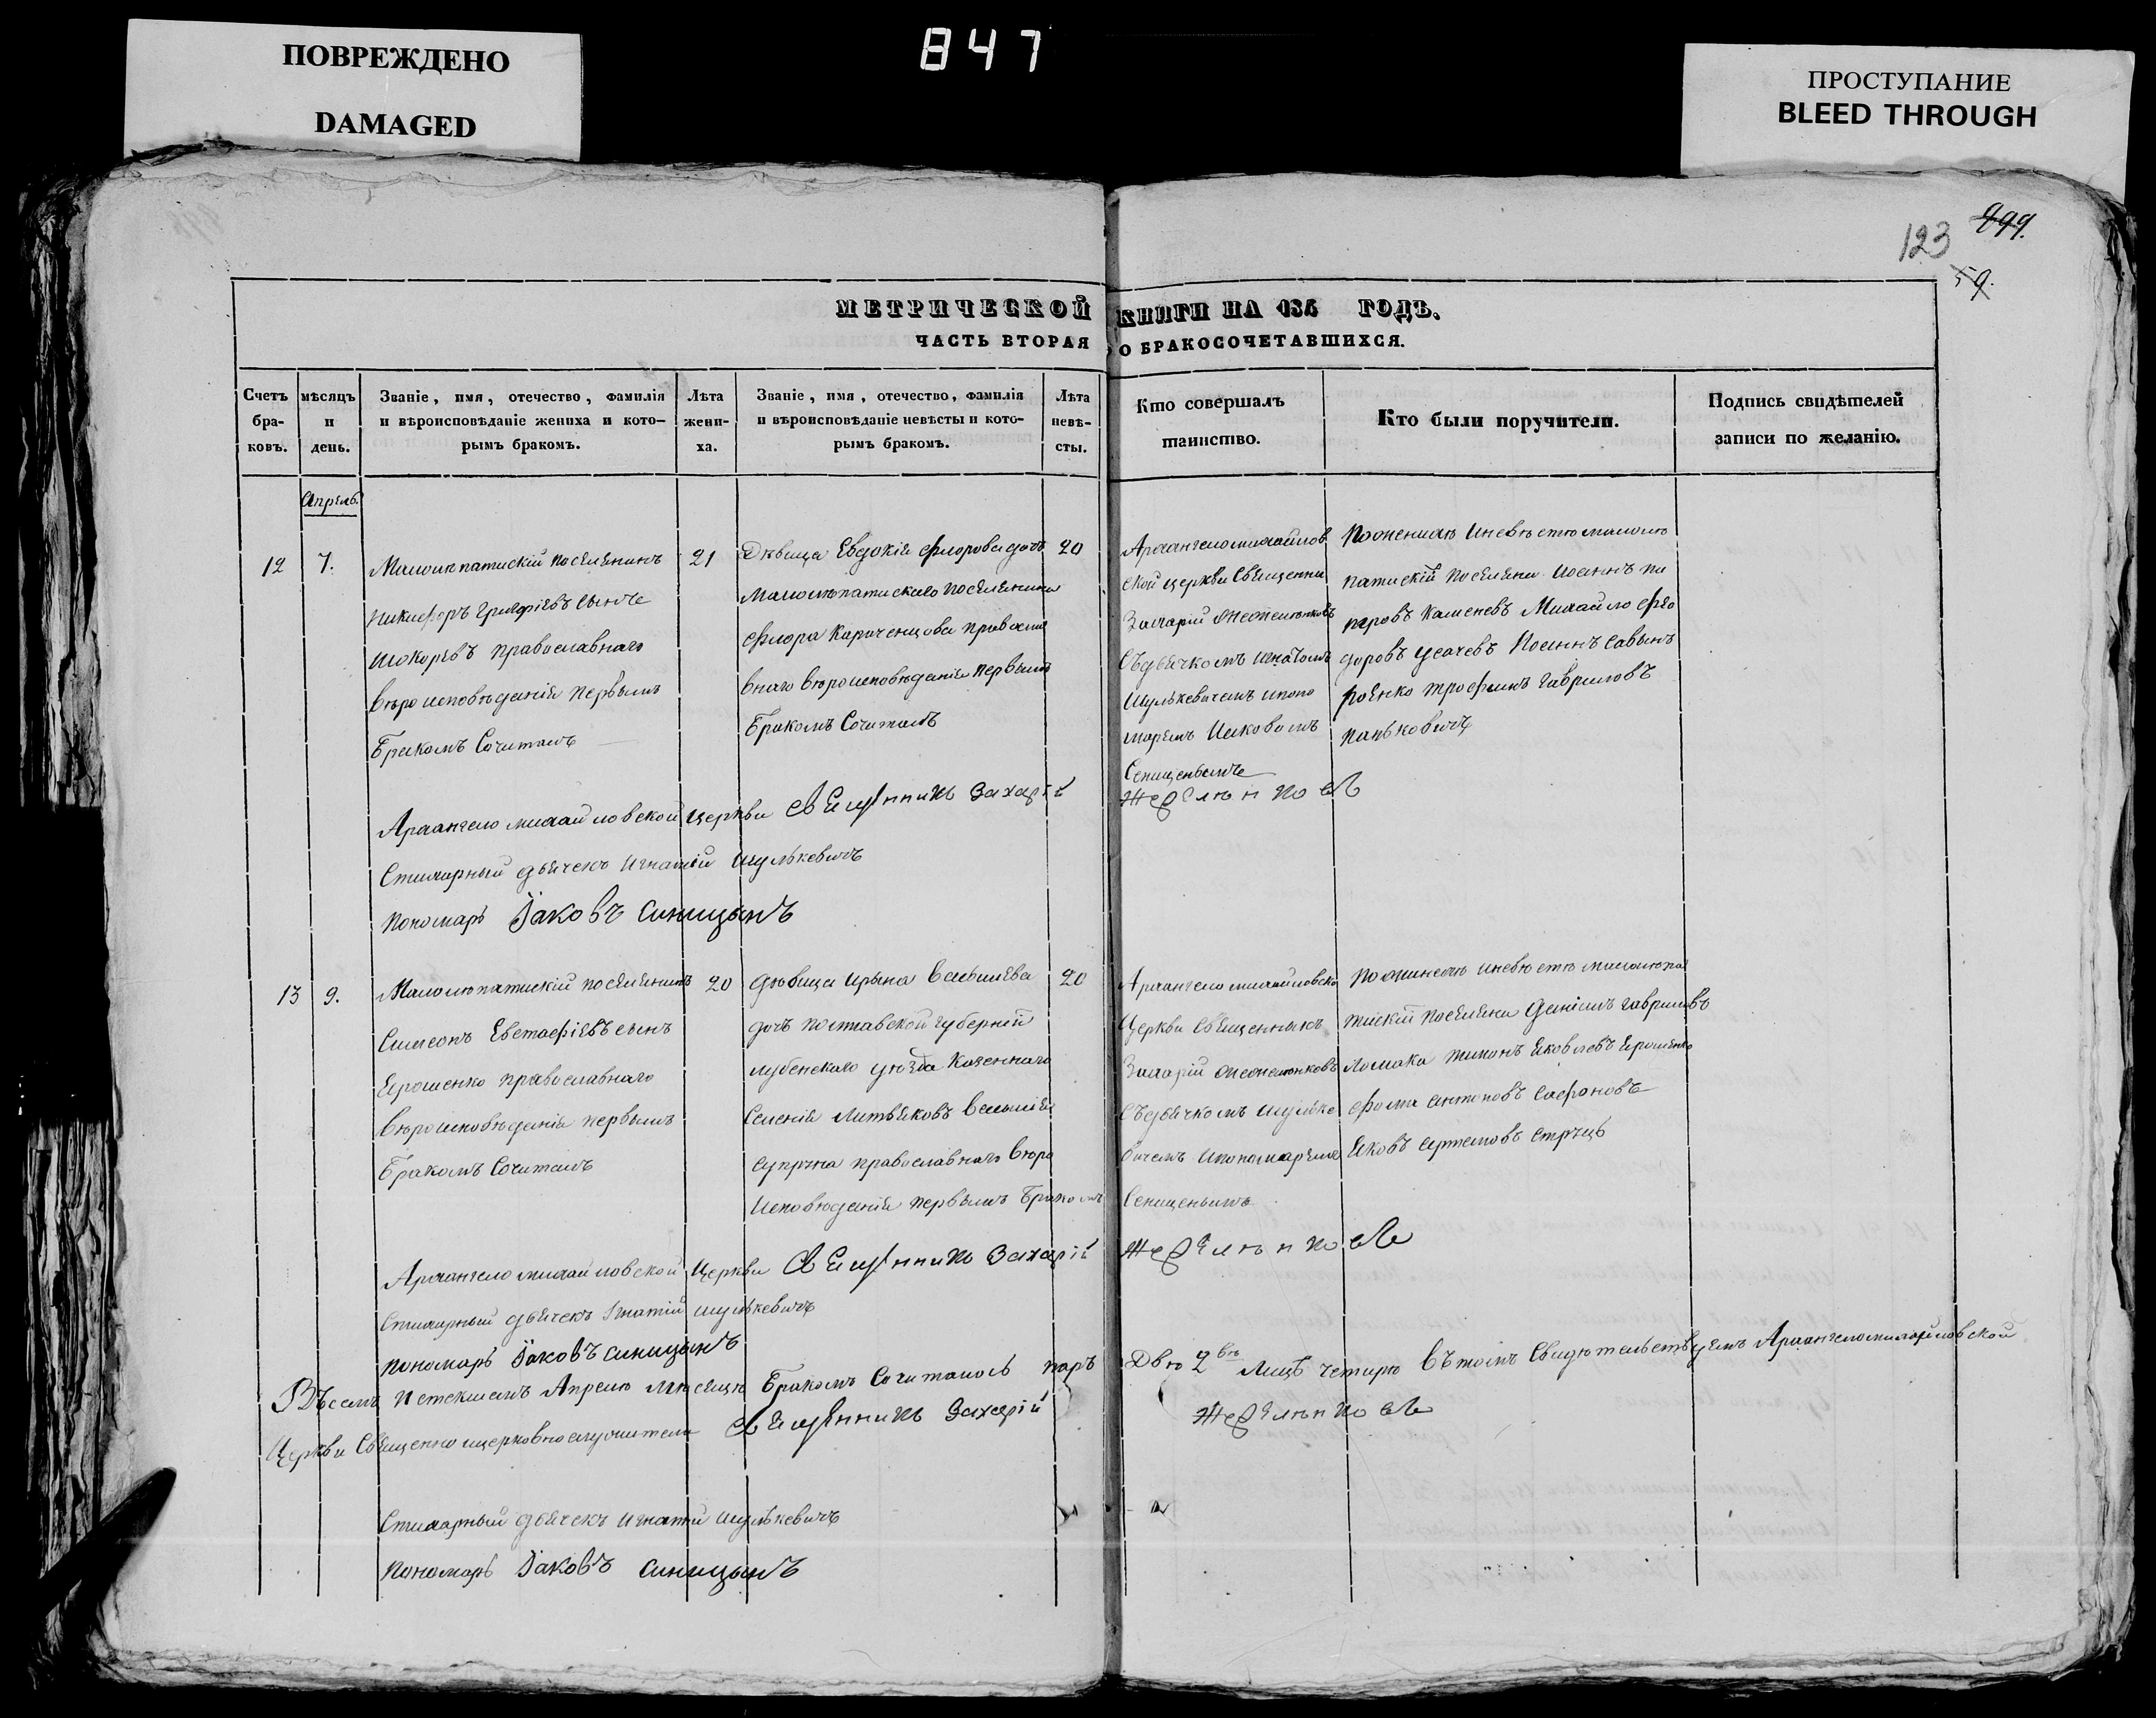 ПОВРЕЖДЕНО
DAMAGED
847
ПРОСТУПАНИЕ
BLEED THROUGH
123
899.
59.
МЕТРИЧЕСКОЙ КНИГИ НА 185 ГОДЪ.
ЧАСТЬ ВТОРАЯ О БРАКОСОЧЕТАВШИХСЯ.
Счетъ бра- ковъ.
мѣсяцъ и день.
Званіе, имя, отечество, фамилія
и вѣроисповѣданіе жениха и кото-
рымъ бракомъ.
Лѣта жени- ха.
Званіе, имя, отечество, фамилія
и вѣроисповѣданіе невѣсты и кото-
рымъ бракомъ.
Лѣта невѣ- сты.
Кто совершалъ
таинство.
Кто были поручители.
Подпись свидѣтелей
записи по желанію.
Апрель
12
7.
Малолепатискій поселянинъ
Никифоръ Григоріевъ сынъ
Шокоревъ православнаго
вѣроисповѣданія первымъ
бракомъ Сочитанъ
21
Дѣвица Евдокія Флорова дочь
Малолепатискаго поселянина
Флора православ
внаго вѣроисповѣданія первымъ
бракомъ Сочитанъ
20
Архангеломихайлов
ской церкви Священни
Захарій
Съ дьячкомъ Игнатомъ
Шулькевичемъ и поно
маремъ Иаковомъ
Сеницинымъ
По жениху и невѣстѣ малолѣ
патискій поселяни Иоаннъ Пи
тровъ Каменевъ Михайло Фео
доровъ Усачевъ Иоаннъ Савинъ
Трофимъ Гавриловъ
Паньковичъ
Архангело михайловской церкви Священникъ Захарій
Стихарный дьячекъ Игнатій Шулькевичъ
пономарь Іаковъ Синицынъ
13
9.
Малолепатискій поселянинъ
Симеонъ Евстафіевъ сынъ
Ерошенко православнаго
вѣроисповѣданія первымъ
бракомъ Сочитанъ
20
дѣвица Ирына Васильева
дочь полтавской губерній
лубенскаго уѣзда Казеннаго
Селенія Литвяковъ Василія
Супруна православнаго вѣро
Исповѣданія первымъ бракомъ
20
Архангело михайловско
Церкви Священникъ
Захарій
Съ дьячкомъ Шульке
вичемъ и пономаремъ
Сеницинымъ
По жинеху и невѣстѣ малолѣпа
тискій поселяни Даніилъ Гавриловъ
Ломака Тимонъ Яковлевъ Ерошенко
Фома Антоновъ Сафоновъ
Яковъ Артемовъ Стрѣцъ
Архангело михайловской Церкви Священникъ Захарій
Стихарный дьячекъ Игнатій Шулькевичъ
пономарь Іаковъ Синицынъ
Въ семъ истекшемъ Апрелѣ мѣсяцѣ бракомъ Сочитаноъ паръ Двѣ 2вѣ Лицъ четирѣ въ томъ Свидѣтельствуемъ Архангеломихайловской
Церкви Священно и церковнослужители Священникъ Захарій
Стихарный дьячекъ Игнатій Шулькевичъ
Пономарь Іаковъ Синицынъ